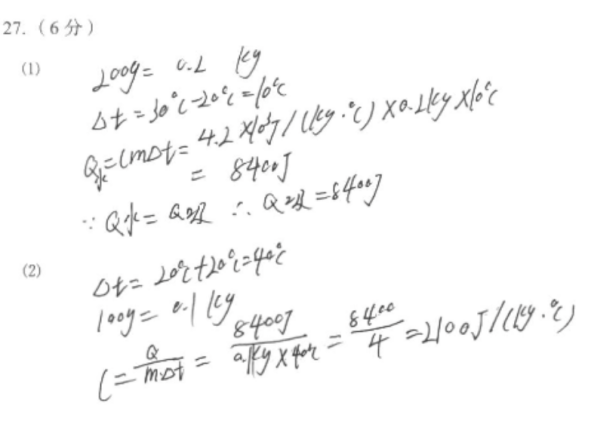 27.（6分）
(1)
200g= 0.2 kg
Δt=30℃-20℃=10℃
Q水=CmΔt=4.2×10³J/(kg·℃)×0.2kg×10℃
= 8400J
∵Q水=Q吸 ∴Q吸=8400J
(2)
Δt=20℃+20℃=40℃
100g=0.1kg
C=Q/mΔt=8400J/0.1kg×40℃=8400/4=2100J/(kg·℃)